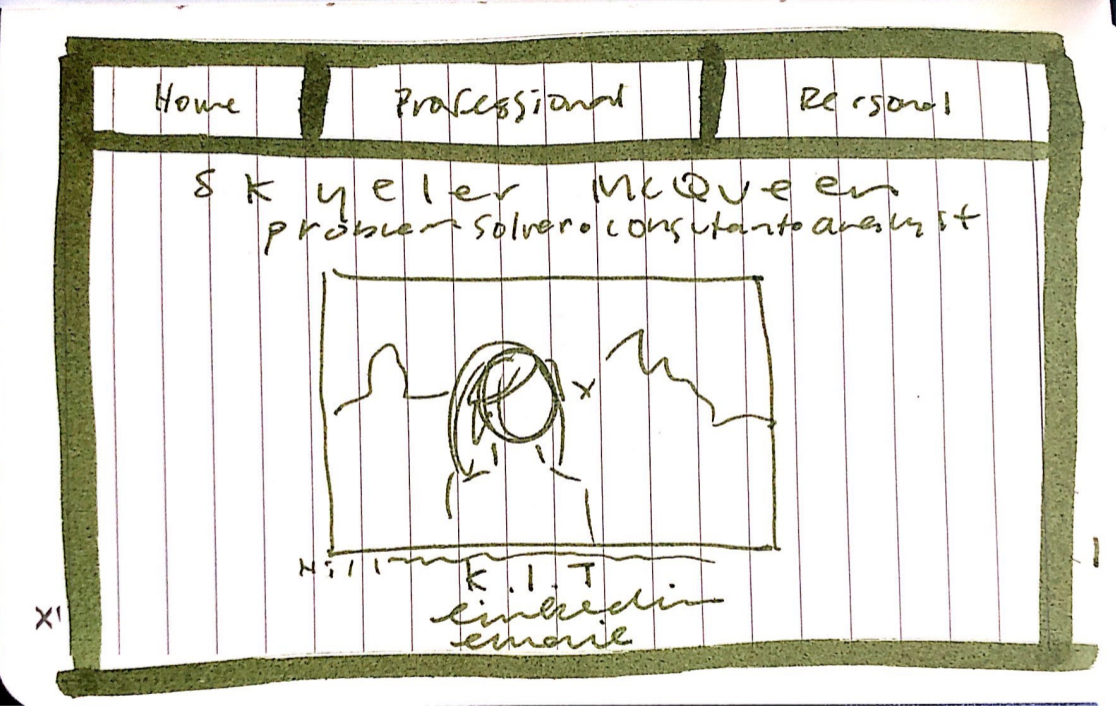 Home Professional Personal
Skyeler McQueen
problem solver • consultant • analyst
Hi!!
K.I.T
linkedin
email